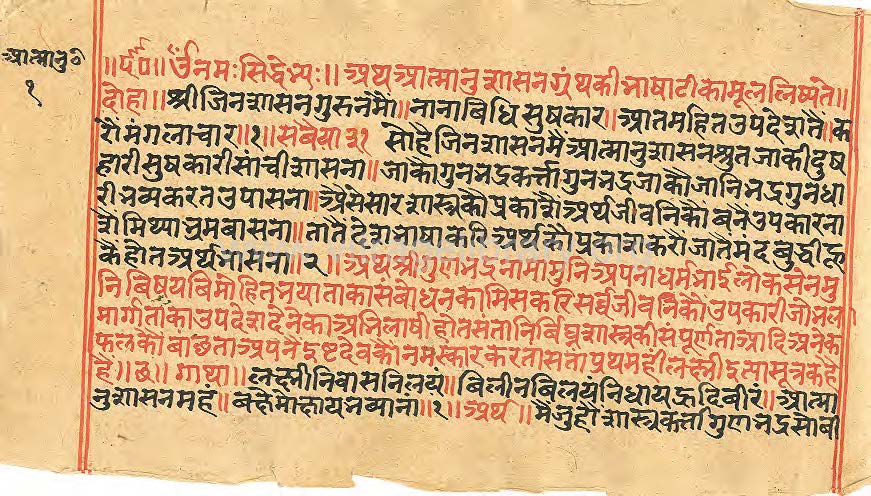 आत्मानु॰
१
॥र्द॰॥ॐनमःसिद्धेभ्यः॥अथआत्मानुशासनग्रंथकीभाषाटीकामूललिष्यते॥
दोहा॥श्रीजिनशासनगुरुनमौं॥नानाविधिसुषकार॥आतमहितउपदेशतैं॥क
रौंमंगलाचार॥१॥सवैया३१ सोहैजिनशासनमैंआत्मानुशासनश्रुतजाकीदुष
हारीसुषकारीसांचीशासना॥जाकोगुनभद्रकर्त्तागुनभद्रजाकौंजानिभद्रगुनधा
रीभव्यकरतउपासना॥ऐसेसारशास्त्रकौंप्रकाशैंअर्थजीवनिकौंबनैंउपकारना
शैमिथ्याभ्रमवासना॥तातैंदेशभाषाकरिअर्थकौंप्रकाशकरौंजातैंमदबुद्धीहू
कैंहोतअर्थभासना॥२॥अथश्रीगुणभद्रनामामुनिअपनाधर्मभाईलोकसेनमु
निविषयविमोहितभयाताकासंबोधनकामिसकरिसर्वजीवनिकौंउपकारीजोभला
मार्गताकाउपदेशदेनेकाअभिलाषीहोतसंतानिर्विघ्नशास्त्रकीसंपूर्णताआदिअनेक
फलकौंवांछताअपनेइष्टदेवकौंनमस्कारकरतासंताप्रथमहीलक्ष्मीइत्यासूत्रकहे
है॥छ॥गाथा॥लक्ष्मीनिवासनिलयं॥विलीनविलयंनिधायहृदिवीरं॥आत्मा
नुशासनमहं॥वक्ष्येमोक्षायभव्यानां॥१॥अर्थ॥मैंजुहौंशास्त्रकर्त्तागुणभद्रसोवी